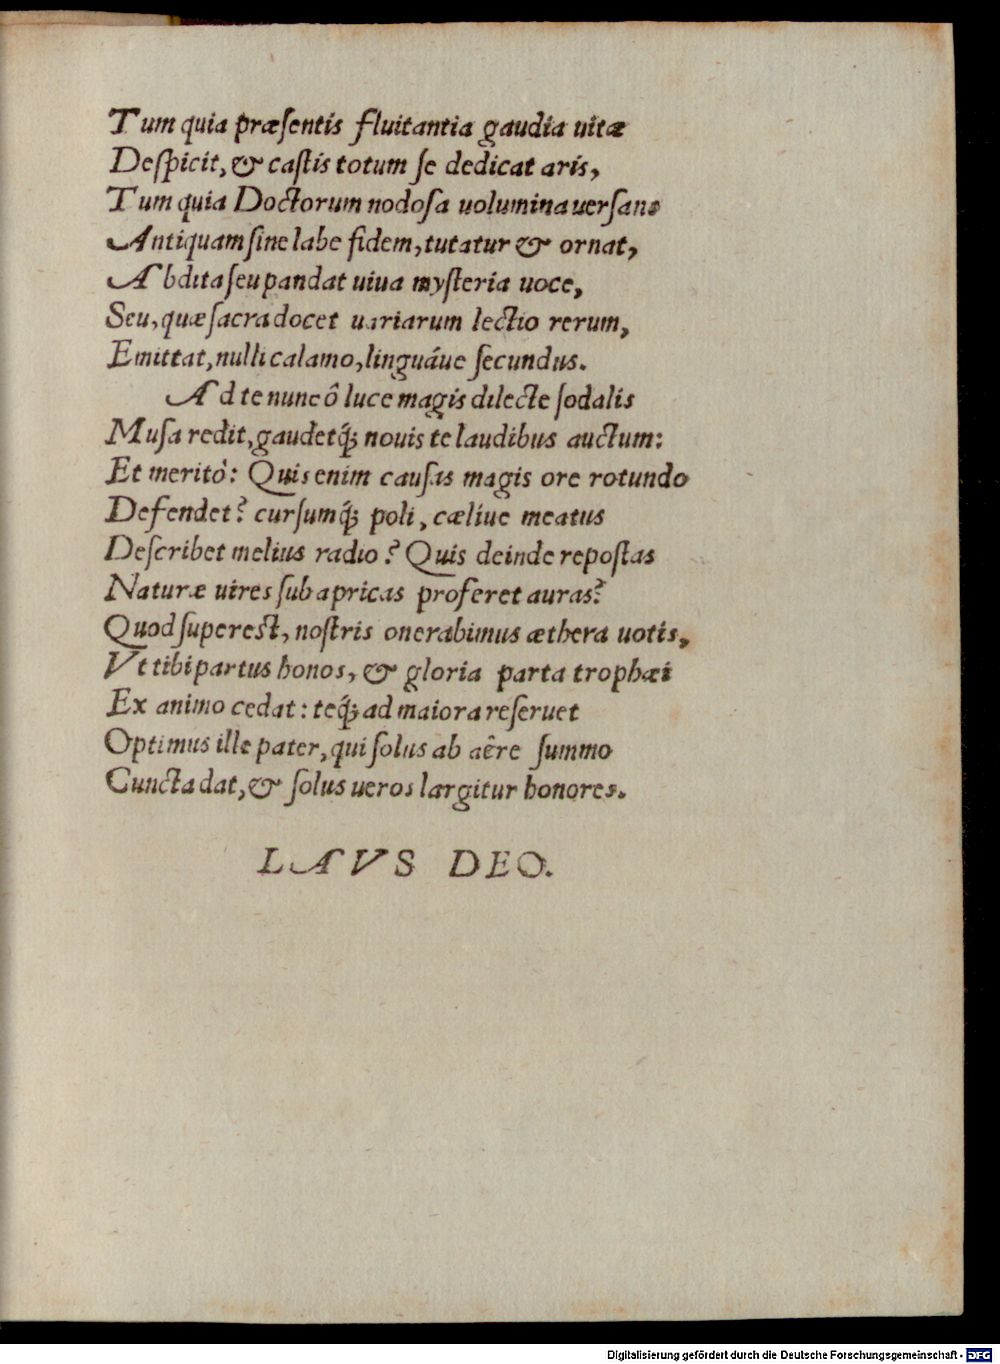 Tum quia præſentis fluitantia gaudia uitæ
Deſpicit, & caſtis totum ſe dedicat aris,
Tum quia Doctorum nodoſa uolumina uerſans
Antiquam ſine labe fidem, tutatur & ornat,
Abdita ſeu pandat uiua myſteria uoce,
Seu, quæ ſacra docet uariarum lectio rerum,
Emittat, nulli calamo, linguáue ſecundus.
Ad te nunc ô luce magis dilecte ſodalis
Muſa redit, gaudetq́; nouis te laudibus auctum:
Et meritò: Quis enim cauſas magis ore rotundo
Defendet? curſumq́; poli, cæliue meatus
Deſcribet melius radio? Quis deinde repoſtas
Naturæ uires ſub apricas proferet auras?
Quod ſupereſt, noſtris onerabimus æthera uotis,
Vt tibi partus honos, & gloria parta trophæi
Ex animo cedat: teq́; ad maiora reſeruet
Optimus ille pater, qui ſolus ab aêre ſummo
Cuncta dat, & ſolus ueros largitur honores.
LAVS DEO.
Digitalisierung gefördert durch die Deutsche Forschungsgemeinschaft - DFG